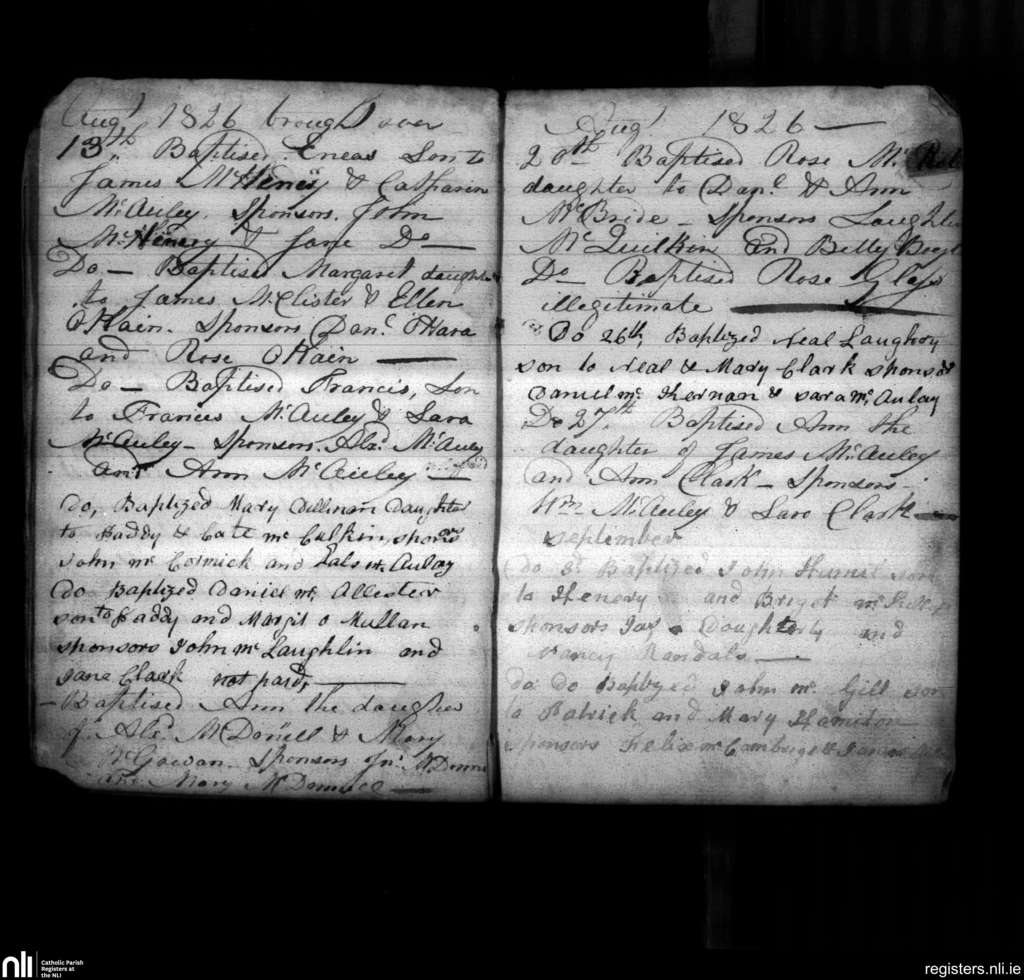 Augt 1826 brought over
13th Baptised Eneas Son to
James McHenery & Catharin
McAuley. Sponsors. John
McHenery & Jane Do —
Do — Baptised Margaret daughter
to James McClister & Ellen
O'Kain. Sponsors Danl O'Hara
and Rose O'Kain —
Do — Baptised Francis, Son
to Francis McAuley & Sara
McAuley — Sponsors. Alexr McAuley
and Ann McAuley —
do, Baptized Mary Dillman Daughter
to Paddy & Cate mc Culkin, sponsrs
John mc Cormick and mc Aulay
do Baptized Daniel mc Allester
son to Paddy and Margit o Mullan
sponsors John mc Laughlin and
Jane Clark not paid, —
— Baptised Ann the daughter
of Alexr McDonell & Mary
McGowan. Sponsors Jno McDonnell
and Mary McDonnell —
Augt 1826 —
20th Baptised Rose Mc
daughter to Danl & Ann
McBride — Sponsors Laughlin
McQuilkin and Betty
Do — Baptised Rose Glass
illegitimate —
Do 26th, Baptized Neal Laughry
son to Neal & Mary Clark sponsors
Daniel mc Kernan & sara mc Aulay
Do 27th Baptised Ann the
daughter of James McAuley
and Ann Clark — Sponsors —
Wm McAuley & Sara Clark —
september
do 3d Baptized John son
to Henery and Briget mc
sponsors Jas Daugherty and
Nancy Randals —
do Do Baptyzed John mc Gill son
to Patrick and Mary Hamilton
sponsors Felix mc Cambrige &
nli
Catholic Parish
Registers at
the NLI
registers.nli.ie